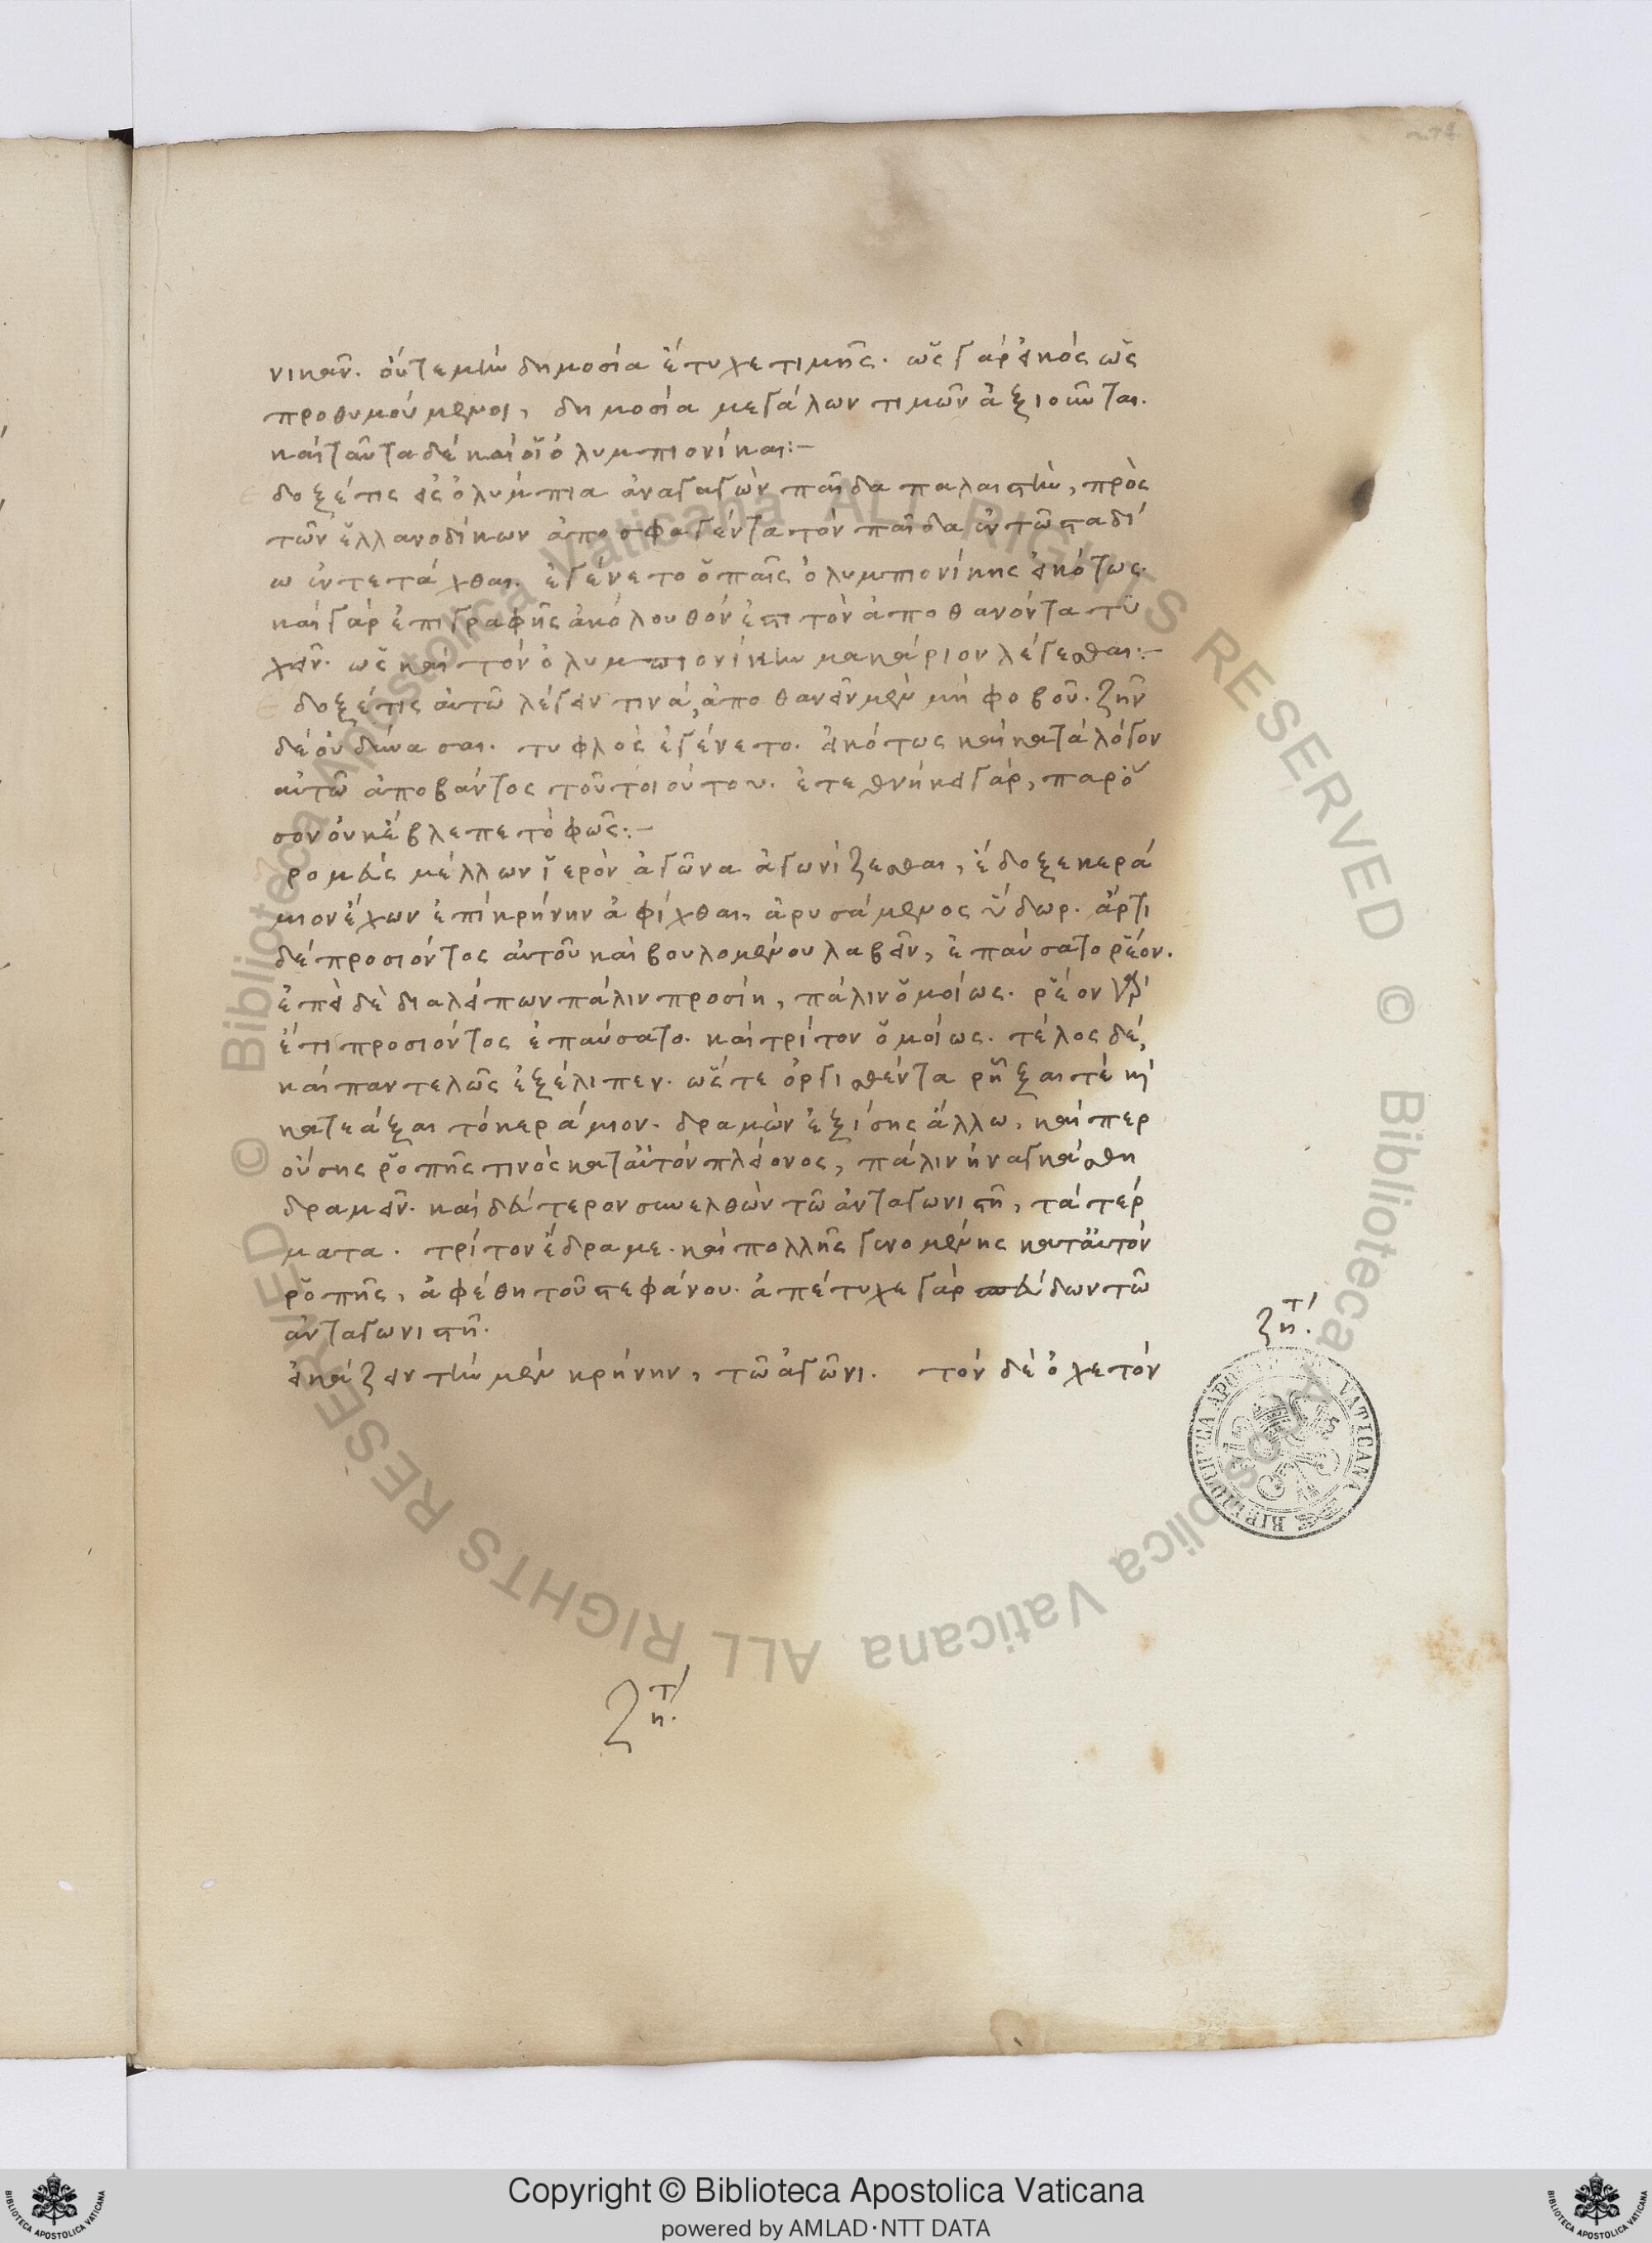 νικᾶν. οὔτε μὴν δημοσία ἔτυχε τιμῆς. ὡς γάρ εἰκός ὡς
προθυμούμενοι, δημοσία μεγάλων τιμῶν ἀξιοῦνται.
καί ταῦτα δέ καί οἱ ὀλυμπιονίκαι:-
δοξέτις εἰς ὀλύμπια ἀναγαγὼν παῖδα παλαιστὴν, πρὸς
τῶν ἑλλανοδίκων ἀποσφαγέντα τόν παῖδα ἐν τῶ σταδί
ω ἐντετάχθαι. ἐγένετο ὁ παῖς ὀλυμπιονίκης εἰκότως.
καί γάρ ἐπιγραφῆς ἀκόλουθόν ἐστι τόν ἀποθανόντα τυ
χεῖν. ὡς καί τόν ὀλυμπιονίκην μακάριον λέγεσθαι:-
δοξέτις αὐτῶ λέγειν τινά, ἀποθανεῖν μὲν μή φοβοῦ. ζῆν
δέ οὐ δύνασαι. τυφλός ἐγένετο. εἰκότως καί κατά λόγον
αὐτῶ ἀποβάντος τοῦ τοιούτου. ἐτεθνήκει γάρ, παρό
σον οὐκ ἔβλεπε τὸ φῶς:-
ρομεὺς μέλλων ἱερὸν ἀγῶνα ἀγωνίζεσθαι, ἔδοξε κερά
μιον ἔχων ἐπί κρήνην ἀφίχθαι, ἀρυσάμενος ὕδωρ. ἄρτι
δέ προσιόντος αὐτοῦ καί βουλομένου λαβεῖν, ἐπαύσατο ρέον.
ἐπεί δὲ διαλείπων πάλιν προσίη, πάλιν ὁμοίως. ρέον
ἔτι προσιόντος ἐπαύσατο. καί τρίτον ὁμοίως. τέλος δέ,
καί παντελῶς ἐξέλιπεν. ὥστε ὀργισθέντα ρῆξαι τέ κ
κατεάξαι τό κεράμιον. δραμὼν ἐξίσης ἄλλω, καίπερ
οὔσης ροπῆς τινός κατ αὐτόν πλείονος, πάλιν ἠναγκάσθη
δραμεῖν. καί δεύτερον συνελθὼν τῶ ἀνταγωνιστῆ, τά τέρ
ματα. τρίτον ἔδραμε. καί πολλῆς γενομένης κατ αὐτόν
ροπῆς, ἀφέθη τοῦ στεφάνου. ἀπέτυχε γάρ σπεύδων τῶ
ἀνταγωνιστῆ.
εἰκάζειν τὴν μὲν κρήνην, τῶ ἀγῶνι. τόν δέ ὀχετόν
ζητ
ζητ
BIBLIOTHECA APOSTOLICA VATICANA
© Biblioteca Apostolica Vaticana ALL RIGHTS RESERVED
© Biblioteca Apostolica Vaticana ALL RIGHTS RESERVED
Copyright © Biblioteca Apostolica Vaticana
powered by AMLAD·NTT DATA
BIBLIOTECA APOSTOLICA VATICANA
BIBLIOTECA APOSTOLICA VATICANA